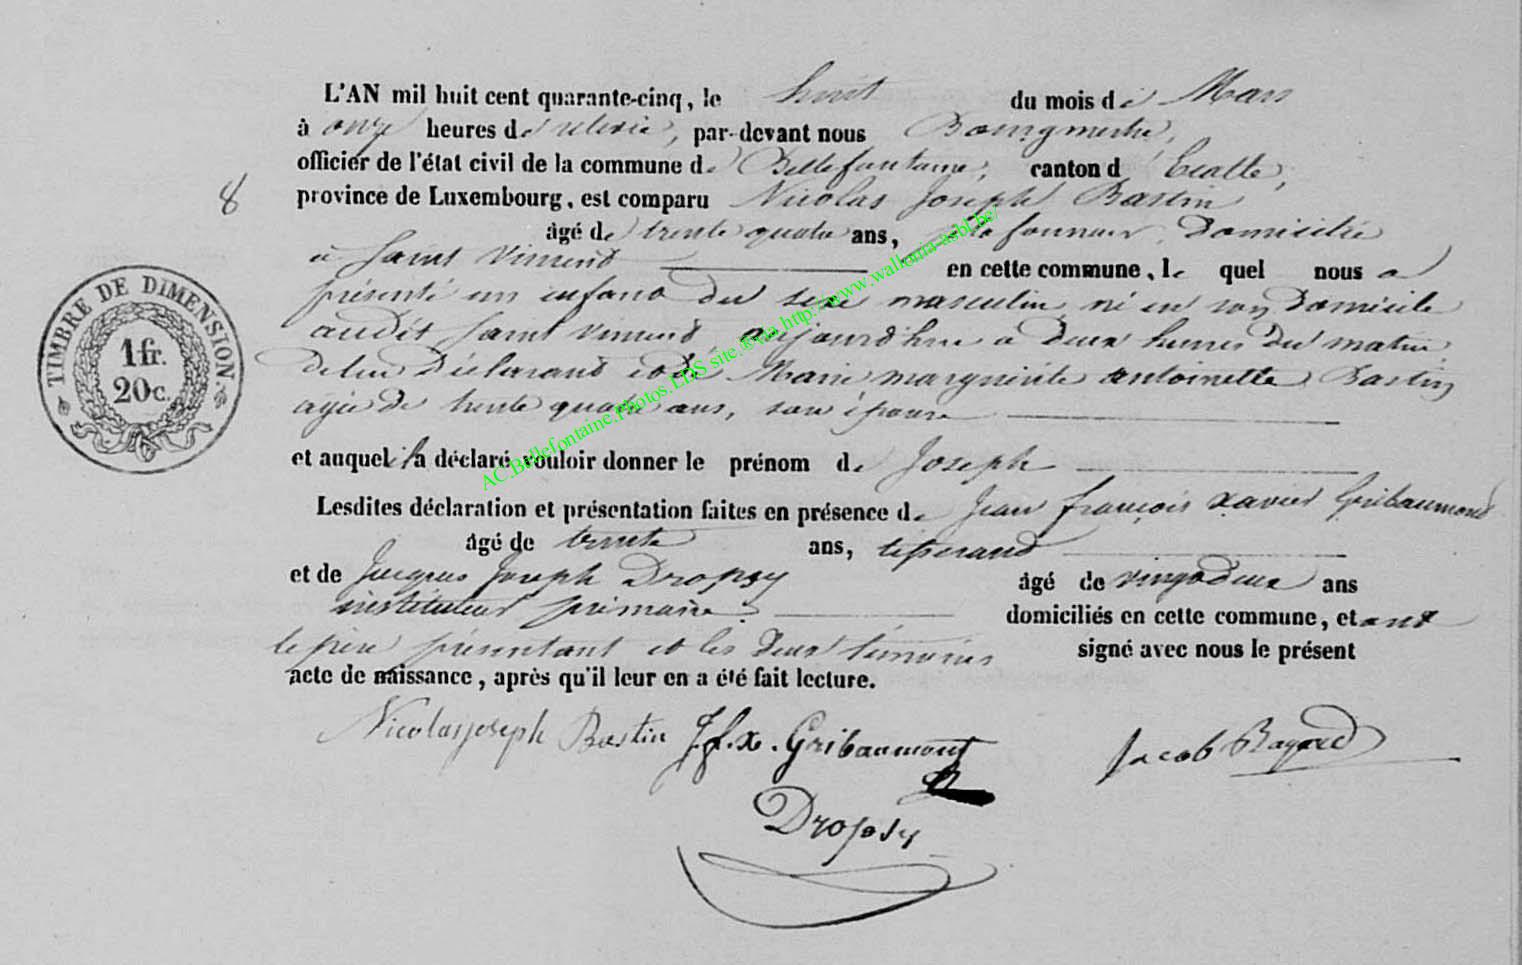 L'AN mil huit cent quarante-cinq, le huit du mois de Mars
à onze heures de relevée, par-devant nous Bourgmestre,
officier de l'état civil de la commune de Bellefontaine, canton d'Etalle,
province de Luxembourg, est comparu Nicolas Joseph Bastin
8
âgé de trente quatre ans, domicilié
à Saint Vincent en cette commune, lequel nous a
présenté un enfant du sexe masculin né en son Domicile
audit Saint Vincent, aujourd'hui à deux heures du matin,
de lui Déclarant et de Marie marguerite antoinette Bastin
agée de trente quatre ans, son épouse
et auquel il a déclaré vouloir donner le prénom de Joseph
Lesdites déclaration et présentation faites en présence de Jean françois xavier Gribaumont
âgé de trente ans, tisserand
et de Jacques Joseph Dropsy âgé de vingt deux ans
instituteur primaire domiciliés en cette commune, et ont
le père présentant et les deux témoins signé avec nous le présent
acte de naissance, après qu'il leur en a été fait lecture.
Nicolas joseph Bastin J.f.x. Gribaumont Jacob
Dropsy
TIMBRE DE DIMENSION.
1 fr.
20 c.
AC.Bellefontaine.Photos.LDS site &via http://www.wallonia-asbl.be/